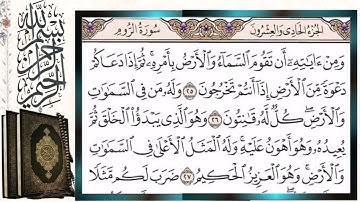 الجزء الحادي والعشرون
سورة الروم
وَمِنْ ءَايَـٰتِهِۦٓ أَن تَقُومَ ٱلسَّمَآءُ وَٱلْأَرْضُ بِأَمْرِهِۦ ۚ ثُمَّ إِذَا دَعَاكُمْ
دَعْوَةً مِّنَ ٱلْأَرْضِ إِذَآ أَنتُمْ تَخْرُجُونَ ٢٥ وَلَهُۥ مَن فِى ٱلسَّمَـٰوَٰتِ
وَٱلْأَرْضِ ۖ كُلٌّ لَّهُۥ قَـٰنِتُونَ ٢٦ وَهُوَ ٱلَّذِى يَبْدَؤُا۟ ٱلْخَلْقَ ثُمَّ
يُعِيدُهُۥ وَهُوَ أَهْوَنُ عَلَيْهِ ۚ وَلَهُ ٱلْمَثَلُ ٱلْأَعْلَىٰ فِى ٱلسَّمَـٰوَٰتِ
وَٱلْأَرْضِ ۚ وَهُوَ ٱلْعَزِيزُ ٱلْحَكِيمُ ٢٧ ضَرَبَ لَكُم مَّثَلًا
بسم الله الرحمن الرحيم